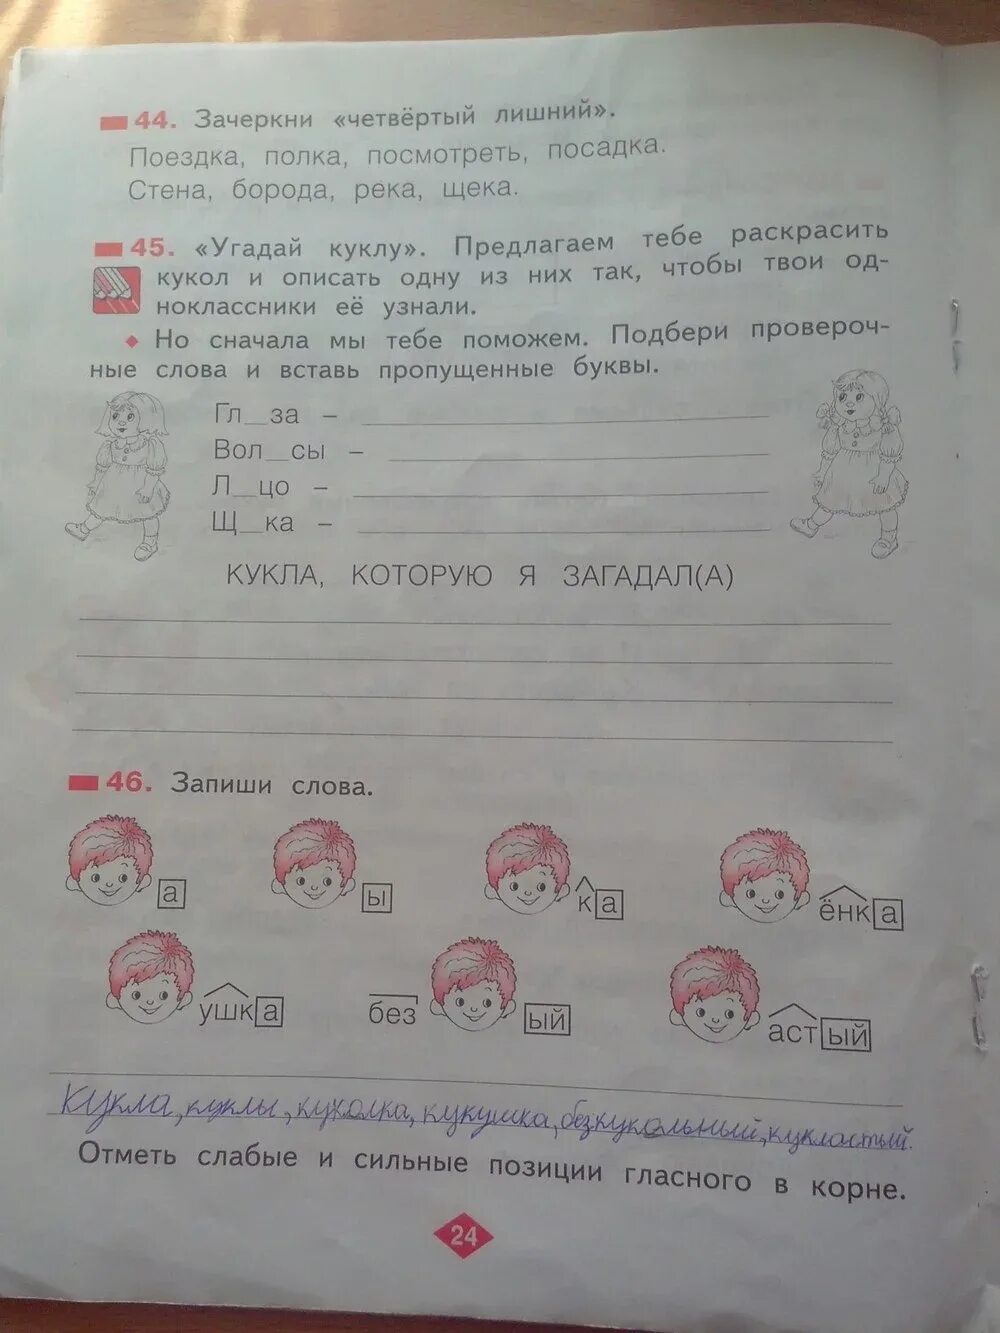 44. Зачеркни «четвёртый лишний».
Поездка, полка, посмотреть, посадка.
Стена, борода, река, щека.
45. «Угадай куклу». Предлагаем тебе раскрасить
кукол и описать одну из них так, чтобы твои од-
ноклассники её узнали.
Но сначала мы тебе поможем. Подбери провероч-
ные слова и вставь пропущенные буквы.
Гл_за –
Вол_сы –
Л_цо –
Щ_ка –
КУКЛА, КОТОРУЮ Я ЗАГАДАЛ(А)
46. Запиши слова.
а ы ка ёнка
ушка без ый астый
Кукла, куклы, куколка, кукушка, безкукольный, кукластый.
Отметь слабые и сильные позиции гласного в корне.
24